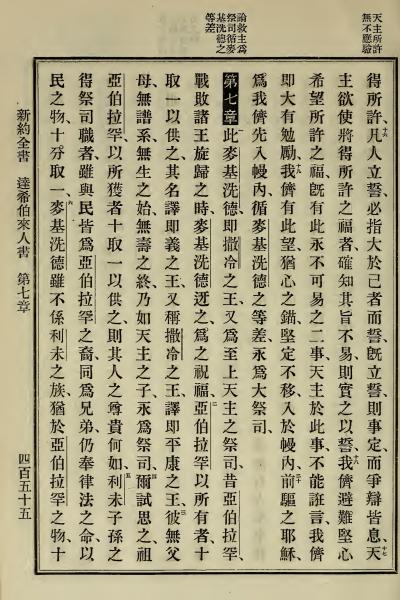 天主所許
無不應驗
論敘主爲
祭司循麥
基洗德之
等差
得所許、十六凡人立誓、必指大於己者而誓、旣立誓、則事定、而爭辯皆息、十七天
主欲使將得所許之福者、確知其旨不易、則實之以誓、十八我儕避難、堅心
希望所許之福、旣有此永不可易之二事、天主於此事、不能誑言、我儕
卽大有勉勵、十九我儕有此望、猶心之錨、堅定不移、入於幔內、二十前驅之耶穌、
爲我儕先入幔內、循麥基洗德之等差、永爲大祭司、
第七章一此麥基洗德、卽撒冷之王、又爲至上天主之祭司、昔亞伯拉罕、
戰敗諸王旋歸之時、麥基洗德迓之、爲之祝福、二亞伯拉罕以所有者十
取一以供之、其名譯卽義之王、又稱撒冷之王、譯卽平康之王、三彼無父
母、無譜系、無生之始、無壽之終、乃如天主之子、永爲祭司、四爾試思之、祖
亞伯拉罕、以所獲者十取一以供之、則其人之尊貴何如、五利未子孫之
得祭司職者、雖與民皆爲亞伯拉罕之裔、同爲兄弟、仍奉律法之命、以
民之物十分取一、六麥基洗德雖不係利未之族、猶於亞伯拉罕之物、十
新約全書 達希伯來人書 第七章 四百五十五